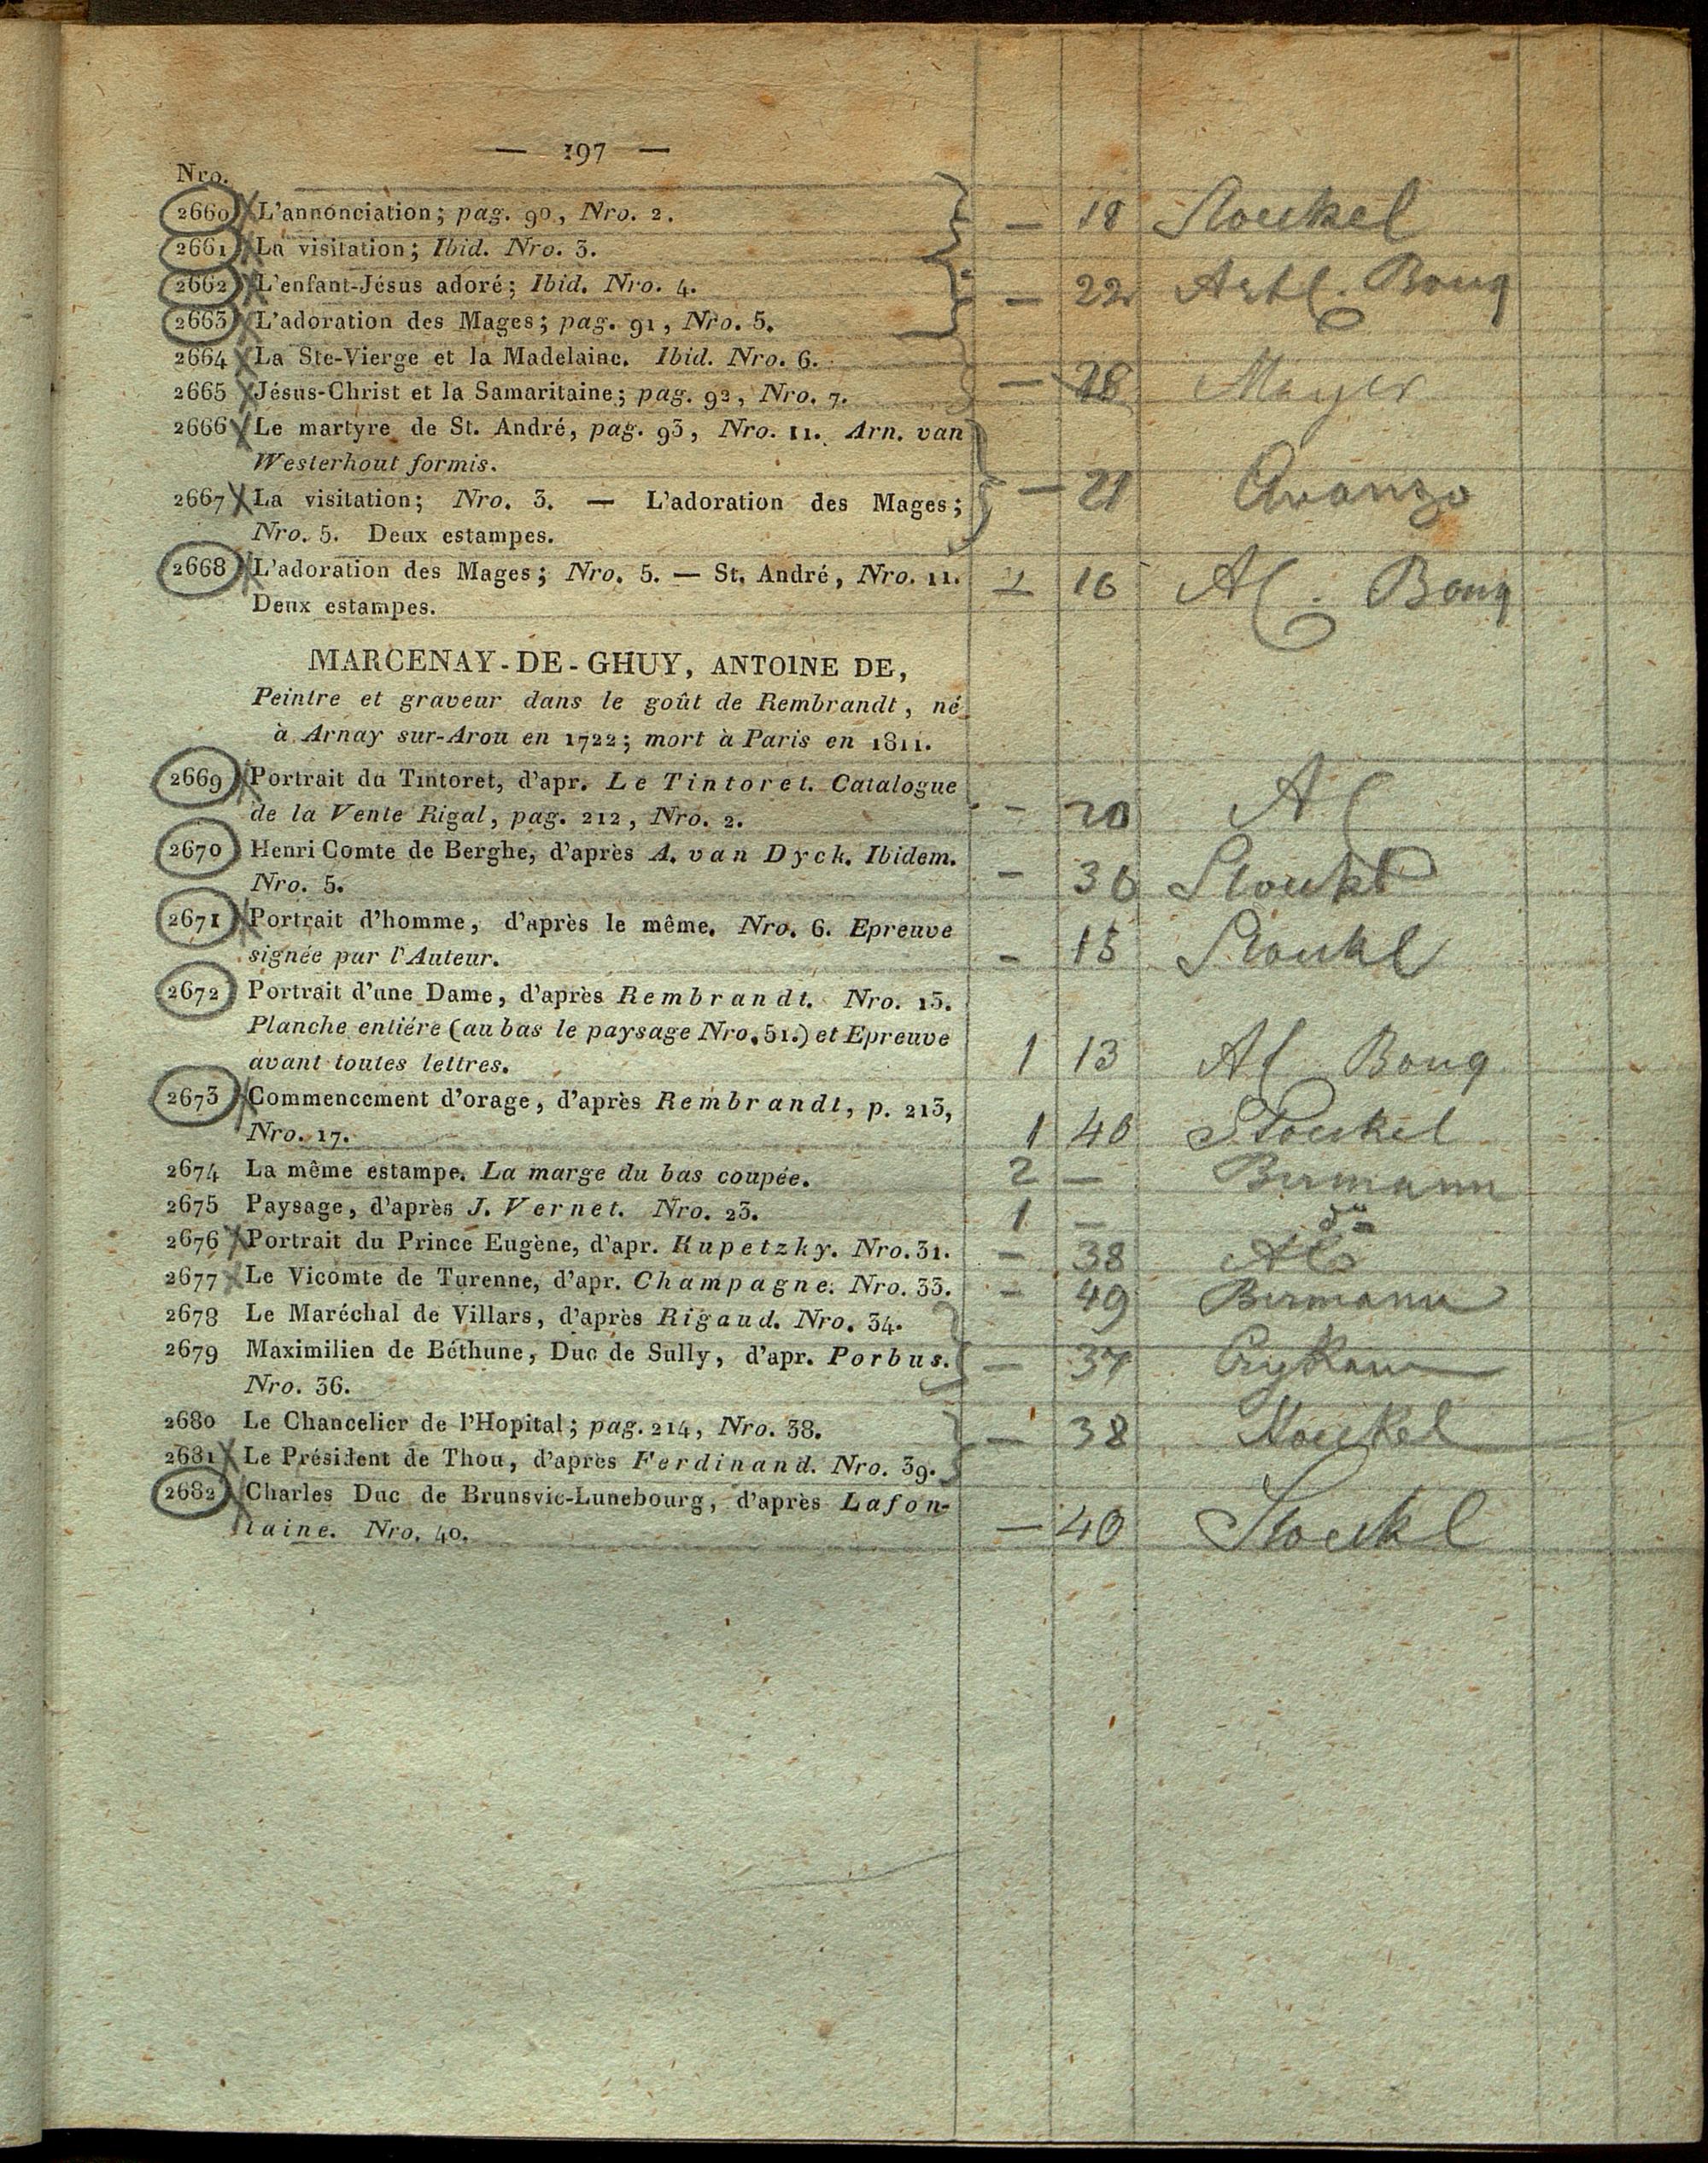 — 197 —
Nro.
2660 L'annonciation; pag. 90, Nro. 2. — 18 Stoeckel
2661 La visitation; Ibid. Nro. 3.
2662 L'enfant-Jésus adoré; Ibid. Nro. 4. — 22
2663 L'adoration des Mages; pag. 91, Nro. 5.
2664 La Ste-Vierge et la Madelaine. Ibid. Nro. 6.
2665 Jésus-Christ et la Samaritaine; pag. 92, Nro. 7. — 28 Mayer
2666 Le martyre de St. André, pag. 93, Nro. 11. Arn. van
Westerhout formis.
2667 La visitation; Nro. 3. — L'adoration des Mages; — 21 Avanzo
Nro. 5. Deux estampes.
2668 L'adoration des Mages; Nro. 5. — St. André, Nro. 11. 16
Deux estampes.
MARCENAY-DE-GHUY, ANTOINE DE,
Peintre et graveur dans le goût de Rembrandt, né
à Arnay sur-Arou en 1722; mort à Paris en 1811.
2669 Portrait du Tintoret, d'apr. Le Tintoret. Catalogue
de la Vente Rigal, pag. 212, Nro. 2. — 20 Al
2670 Henri Comte de Berghe, d'après A. van Dyck. Ibidem.
Nro. 5. — 36 Stoekl
2671 Portrait d'homme, d'après le même. Nro. 6. Epreuve
signée par l'Auteur. — 15 Stoekl
2672 Portrait d'une Dame, d'après Rembrandt. Nro. 15.
Planche entiére (au bas le paysage Nro. 51.) et Epreuve
avant toutes lettres. 1 13 Al
2673 Commencement d'orage, d'après Rembrandt, p. 213,
Nro. 17. 1 40 Stoeckel
2674 La même estampe. La marge du bas coupée. 2 — Bermann
2675 Paysage, d'après J. Vernet. Nro. 23. 1 — do
2676 Portrait du Prince Eugène, d'apr. Kupetzky. Nro. 31. — 38
2677 Le Vicomte de Turenne, d'apr. Champagne. Nro. 33. — 49 Bermann
2678 Le Maréchal de Villars, d'après Rigaud. Nro. 34.
2679 Maximilien de Béthune, Duc de Sully, d'apr. Porbus. — 37
Nro. 36.
2680 Le Chancelier de l'Hopital; pag. 214, Nro. 38. — 38 Stoeckel
2681 Le Président de Thou, d'après Ferdinand. Nro. 39.
2682 Charles Duc de Brunsvic-Lunebourg, d'après Lafon-
taine. Nro. 40. — 40 Stoekl